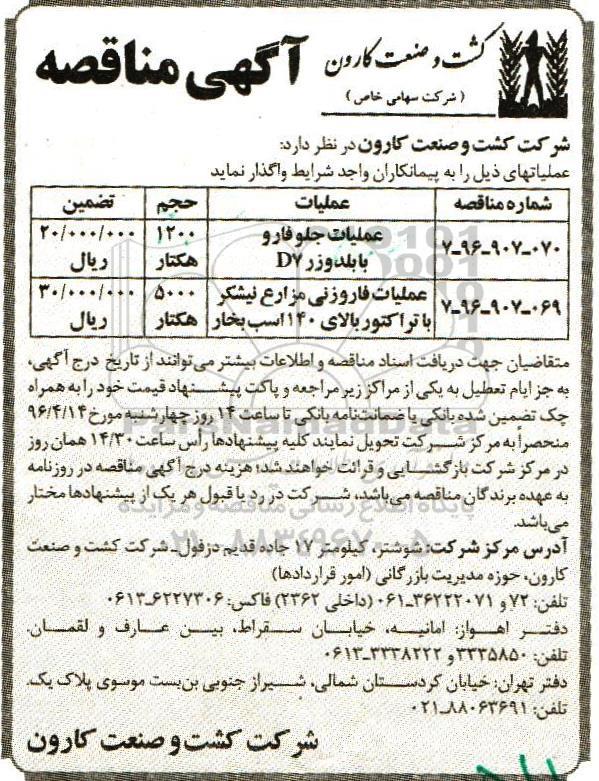 کشت و صنعت کارون
(شرکت سهامی خاص)
آگهی مناقصه
شرکت کشت و صنعت کارون در نظر دارد:
عملیاتهای ذیل را به پیمانکاران واجد شرایط واگذار نماید
شماره مناقصه عملیات حجم تضمین
۷ـ۹۶ـ۹۰۷ـ۰۷۰ عملیات جلو فارو با بلدوزر D۷ ۱۲۰۰ هکتار ۲۰/۰۰۰/۰۰۰ ریال
۷ـ۹۶ـ۹۰۷ـ۰۶۹ عملیات فاروزنی مزارع نیشکر با تراکتور بالای ۱۴۰ اسب بخار ۵۰۰۰ هکتار ۳۰/۰۰۰/۰۰۰ ریال
متقاضیان جهت دریافت اسناد مناقصه و اطلاعات بیشتر می‌توانند از تاریخ درج آگهی،
به جز ایام تعطیل به یکی از مراکز زیر مراجعه و پاکت پیشنهاد قیمت خود را به همراه
چک تضمین شده بانکی یا ضمانت‌نامه بانکی تا ساعت ۱۴ روز چهارشنبه مورخ ۹۶/۴/۱۴
منحصراً به مرکز شرکت تحویل نمایند کلیه پیشنهادها رأس ساعت ۱۴/۳۰ همان روز
در مرکز شرکت بازگشایی و قرائت خواهند شد؛ هزینه درج آگهی مناقصه در روزنامه
به عهده برندگان مناقصه می‌باشد، شرکت در رد یا قبول هر یک از پیشنهادها مختار
می‌باشد.
آدرس مرکز شرکت: شوشتر، کیلومتر ۱۷ جاده قدیم دزفول ـ شرکت کشت و صنعت
کارون، حوزه مدیریت بازرگانی (امور قراردادها)
تلفن: ۷۲ و ۳۶۲۲۲۰۷۱ـ۰۶۱ (داخلی ۲۳۶۲) فاکس: ۶۲۲۷۳۰۶ـ۰۶۱۳
دفتر اهواز: امانیه، خیابان سقراط، بین عارف و لقمان.
تلفن: ۳۳۳۵۸۵۰ و ۳۳۳۸۲۲۲ـ۰۶۱۳
دفتر تهران: خیابان کردستان شمالی، شیراز جنوبی بن‌بست موسوی پلاک یک.
تلفن: ۸۸۰۶۳۶۹۱ـ۰۲۱
شرکت کشت و صنعت کارون
ParsNamadData
پایگاه اطلاع رسانی مناقصه و مزایده